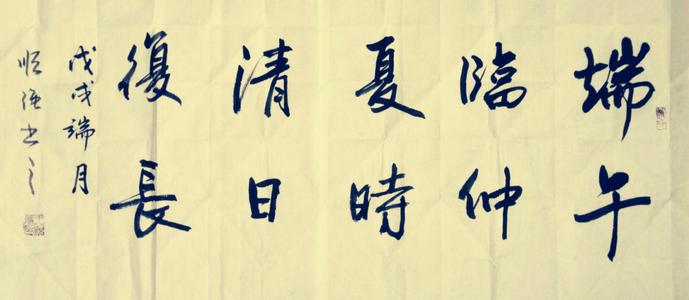 端午
臨仲
夏時
清日
復長
戊戌端月
順强书之